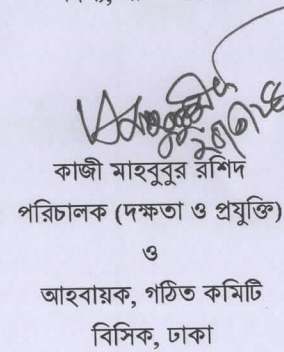 কাজী মাহবুবুর রশিদ
পরিচালক (দক্ষতা ও প্রযুক্তি)
ও
আহবায়ক, গঠিত কমিটি
বিসিক, ঢাকা